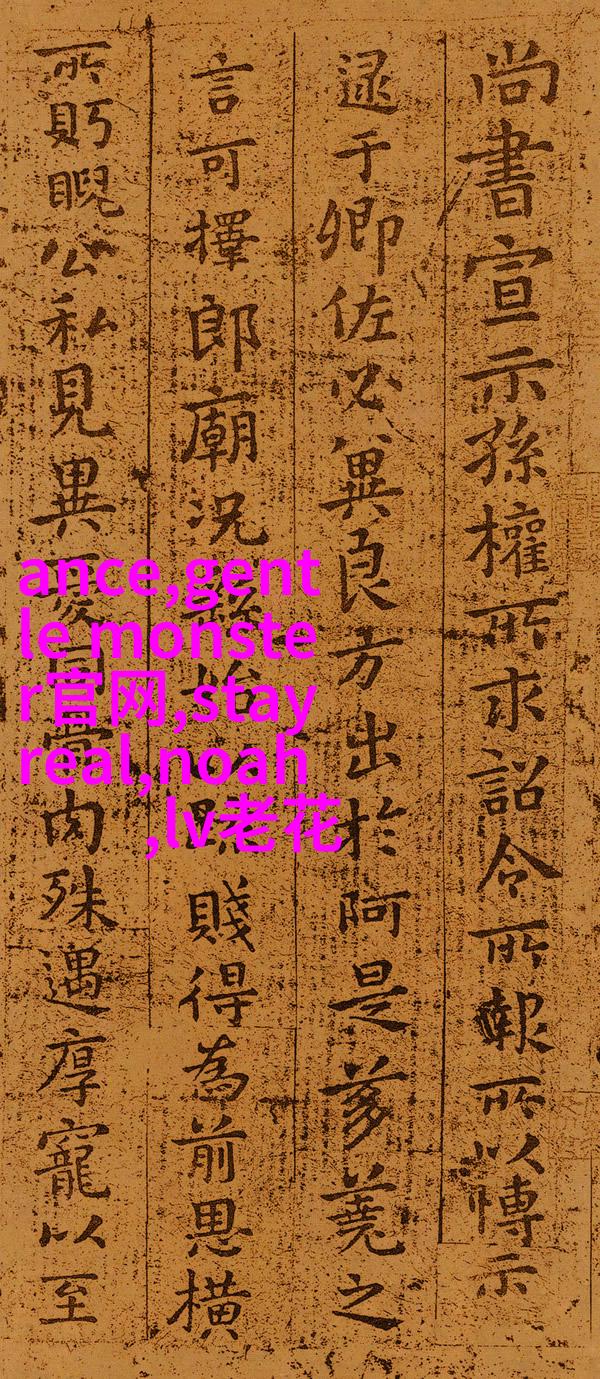 尚書宣示孫權所求詔令所報所以博示
逮于卿佐必冀良方出於阿是芻蕘之
言可擇郎廟況繇始賤得為前恩橫
所眄睨公私見異同骨肉殊遇厚寵以至
ance,gent
le monste
r官网,stay
real,noah
,lv老花